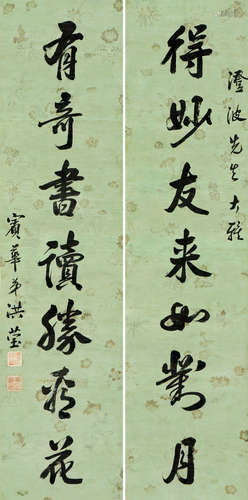 澄波先生大雅
得妙友来如对月
有奇書讀勝看花
賓華弟洪瑩